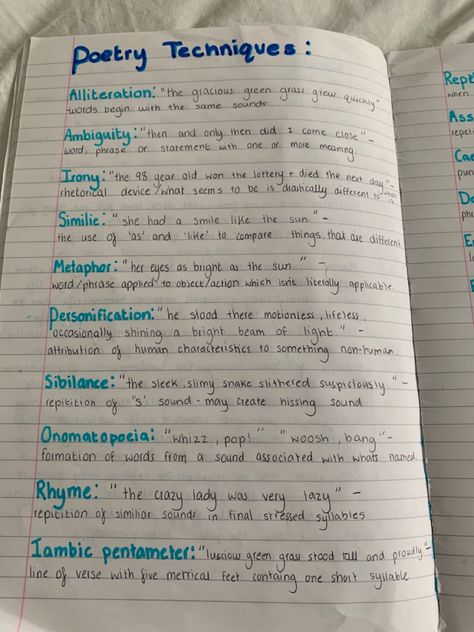 Poetry Techniques:
Alliteration: "the gracious green grass grew quickly"
-words begin with the same sounds
Ambiguity: "then and only then did I come close" -
word, phrase or statement with one or more meaning
Irony: "the 98 year old won the lottery + died the next day" -
rhetorical device/what seems to be is drastically different to
Similie: "she had a smile like the sun" -
the use of 'as' and 'like' to compare things that are different
Metaphor: "her eyes as bright as the sun" -
word/phrase applied to object/action which isnt literally applicable
Personification: "he stood there motionless, lifeless,
occasionally shining a bright beam of light" -
attribution of human characteristics to something non-human
Sibilance: "the sleek, slimy snake slithered suspiciously" -
repitition of 's' sound - may create hissing sound
Onomatopoeia: "whizz, pop!" "woosh, bang" -
formation of words from a sound associated with whats named
Rhyme: "the crazy lady was very lazy" -
repitition of similiar sounds in final stressed syllables
Iambic pentameter: "luscious green grass stood tall and proudly" -
line of verse with five metrical feet containg one short syllable
Rept
when
Ass
repet
Cae
pun